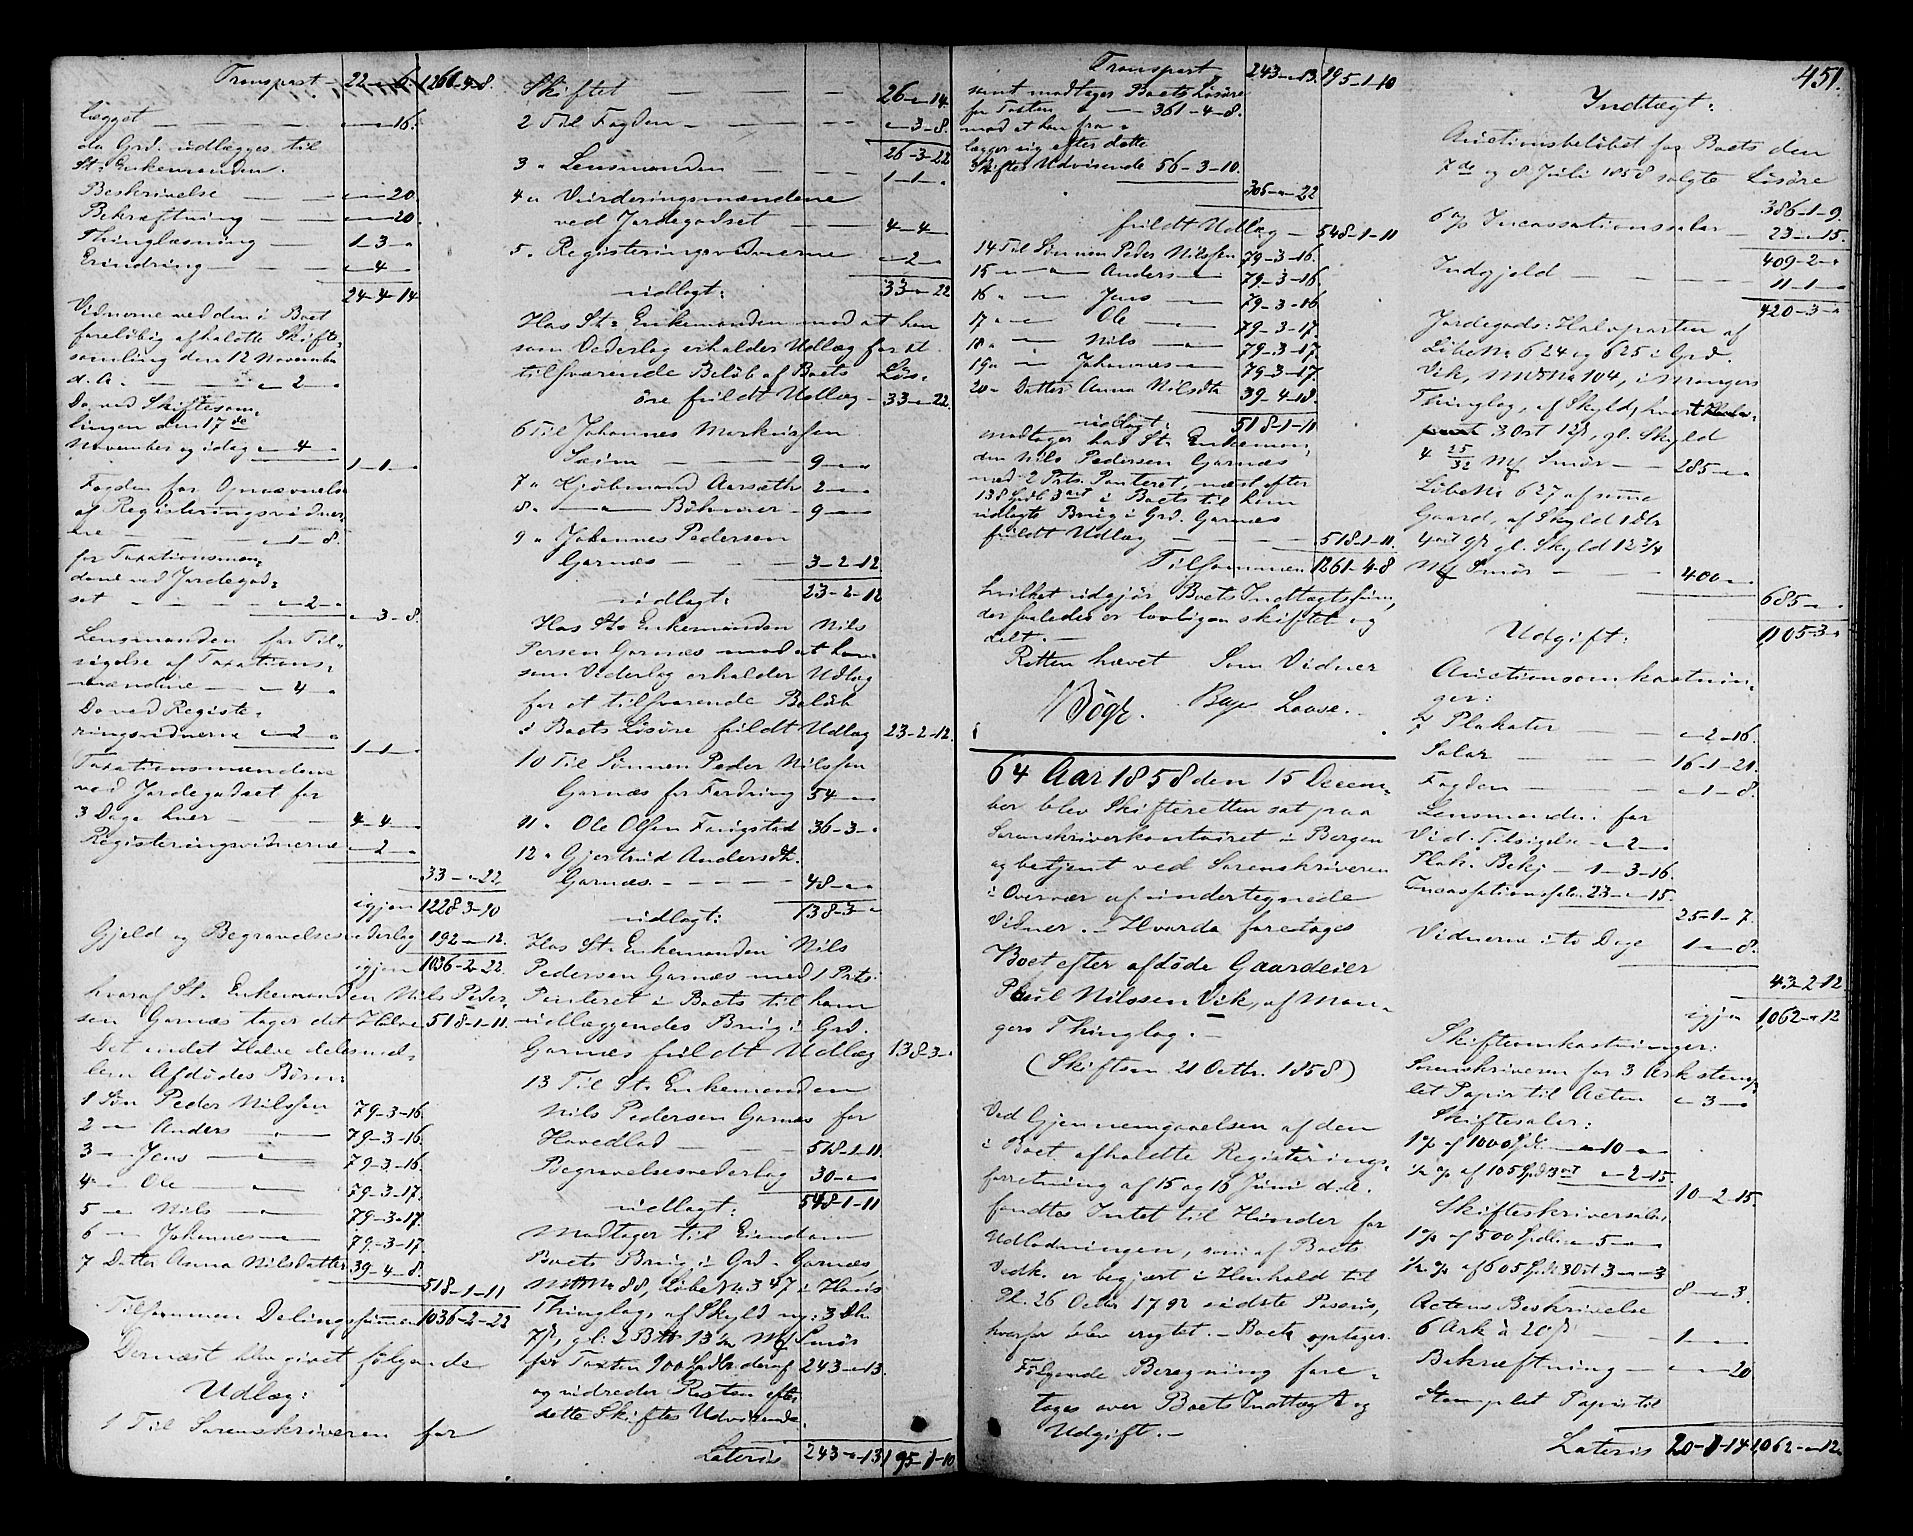 Transport 22 " 6 1261-4-8.
Lægget — — — " " 16.
da Grd. udlægges til
St. Enkemanden.
Beskrivelse — — " " 20.
Bekræftning — " " 20.
Thinglæsning — 1-3-"
Erindring — — " 4 "
24-4-14
Vidnerne ved den i Boet
foreløbig afholdte Skifte-
samling den 12 November
d. A. — — " 2 "
Do ved Skiftesam-
lingen den 17de
November og idag " 4 "
1-1-"
Fogden for Opnævnelse
af Registreringsvidner-
ne — — " 1-8.
for Taxationsmæn-
dene ved Jordegod-
set — — — " 2 "
" 3-8.
Lensmanden for Til-
sigelse af Taxations-
mændene — " 4 "
Do ved Registe-
ringsvidnerne " 2 "
1-1-"
Taxationsmændene
ved Jordegodset for
3 Dage hver — 4-4-"
Registeringsvidnerne " 2 "
33-"-22.
igjen 1228-3-10
Gjeld og Begravelsesvederlag 192-"-12.
igjen 1036-2-22.
hvoraf St. Enkemanden Nils Peder-
sen Garnæs tager det Halve 518-1-11.
Det andet Halve deles mel-
lem Afdødes Børn:
1 Søn Peder Nilssen 79-3-16.
2 — " Anders — " — 79-3-16.
3 — " Jens — " — 79-3-16
4 — " Ole — " — 79-3-17.
5 — " Nils — " — 79-3-17.
6 — " Johannes — " — 79-3-17.
7 Datter Anna Nilsdatter 39-4-8.
518-1-11
Tilsammen Delingssummen 1036-2-22
Dernæst blev givet følgende
Udlæg:
1 Til Sorenskriveren for
Skiftet — — — — 26-"-14.
2 Til Fogden — — — " 3-8.
26-3-22
3 " Lensmanden — — 1-1-"
4 " Vurderingsmændene
ved Jordegodset — — 4-4-"
5 " Registeringsvidnerne " 2 "
udlagt: 33-"-22
Hos St. Enkemanden mod at han
som Vederlag erholder Udlæg for et
tilsvarende Beløb af Boets Løs-
øre fuldt Udlæg — 33-"-22.
6 Til Johannes Markussen
Seim — — — 9-"-"
7 " Kjøbmand Aarsæth 2-"-"
8 " — " — Böhmer — 9-"-"
9 " Johannes Pedersen
Garnæs — — — 3-2-12
udlagt: 23-2-12
Hos St. Enkemanden Nils
Persen Garnæs mod at han
som Vederlag erholder Udlæg
for et tilsvarende Beløb
i Boets Løsøre fuldt Udlæg 23-2-12.
10 Til Sønnen Peder Nilssen
Garnæs for Fordring 54-"-"
11 " Ole Olsen Fanigstad 36-3-"
12 " Gjertrud Andersdtr.
Garnæs — — — 48-"-"
udlagt: 138-3-"
Hos St. Enkemanden Nils
Pedersen Garnæs med 1 Prts:
Panteret i Boets til ham
udlæggendes Brug i Grd.
Garnæs fuldt Udlæg 138-3-"
13 Til St. Enkemanden
Nils Pedersen Garnæs for
Hovedlod — — 518-1-11.
Begravelsesvederlag 30-"-"
udlagt: 548-1-11
Modtager til Eiendom
Boets Brug i Grd. Garnæs,
Mtr No 88, Løbe No 347 i Hauus
Thinglag, af Skyld ny: 3 Dlr.
7 ß, gl: 2 Btt 13 ½ Mkf Smör
for Taxten 900 Spdlr. deraf 243-"-13.
og udreder Resten efter
dette Skiftes Udvisende.
Lateris 243-"-13 195-1-10
Transport 243-"-13. 195-1-10
samt modtager Boets Løsøre
for Taxten " — 361-4-8.
mod at han fra-
lægger sig efter dette
Skiftes Udvisende 56-3-10.
305-"-22
fuldt Udlæg — 548-1-11
14 Til Sønnen Peder Nilssen 79-3-16.
15 " — " Anders " 79-3-16,
16 " — Jens — 79-3-16,
17 " — Ole — 79-3-17.
18 " — Nils — " 79-3-17.
19 " — Johannes — 79-3-17.
20 " Datter Anna Nilsdtr 39-4-8.
udlagt: 518-1-11
modtager hos St. Enkeman-
den Nils Pedersen Garnæs
med 2 Prts. Panteret, næst efter
138 Spdlr 3 ort i Boets til ham
udlagte Brug i Grd. Garnæs
fuldt Udlæg — — — 518-1-11.
Tilsammen 1261-4-8
hvilket udgjør Boets Indtægtssum,
der saaledes er lovligen skiftet og
delt. —
Retten hævet Som Vidner
Bøgh. Lasse.
64 Aar 1858 den 15 Decem-
ber blev Skifteretten sat paa
Sorenskriverkontoiret i Bergen
og betjent ved Sorenskriveren
i Overvær af undertegnede
Vidner. — Hvorda foretoges
Boet efter afdøde Gaardeier
Poul Nilssen Vik, af Man-
gers Thinglag. —
(Skiftesm 21 Octbr. 1858)
Ved Gjennemgaaelsen af den
i Boet afholdte Registerings-
forretning af 15 og 16 Juni d. A.
fandtes Intet til Hinder for
Udlodningen, som af Boets
Vedk. er begjært i Henhold til
Pl. 26 Octbr 1792 sidste Passus,
hvorfor blev vragtet. — Boets optager.
Følgende Beregning fore-
tages over Boets Indtægt og
Udgift. —
451.
Indtægt:
Auctionsbeløbet for Boets den
7de og 8 Juli 1858 solgte Løsøre
386-1-9.
6 % Incassationssalar — 23-"-15.
409-2-"
Indgjeld — — — 11-1-"
420-3-"
Jordegods: Halvparten af
Løbe No 624 og 625 i Grd.
Vik, Mtr No 104, i Mangers
Thinglag, af Skyld, hver Halv-
part 3 ort 12 ß, gl. Skyld
4 25/32 Mkf Smör — 285-"-"
Løbe No 627 af samme
Gaard, af Skyld 1 Dlr
4 ort 9 ß gl. Skyld 12 3/4
Mkf Smör — — — 400-"-"
685-"-"
Udgift: 1,105-3-"
Auctionsomkostnin-
ger:
7 Plakater — — " 2-16.
Salær — — — 16-1-21.
Fogden — — — " 1-8.
Lensmanden for
Vid. Tilsigelse " 2 "
Plak. Bekj — 1-3-16.
Incassationssalær 23-"-15.
25-1-7.
Vidnerne i to Dage 1-"-8.
43-2-12
igjen 1,062-"-12
Skifteomkostninger:
Sorenskriveren for 3 Ark stemp-
let Papir til Acten " 3 "
Skiftesalær:
1 % af 1000 Spdlr — " 10 "
½ % af 105 Spdlr 3 ort " 2-15.
10-2-15.
Skifteskriversalær
1 % af 500 Spdlr " 5 "
½ % af 605 Spdlr 3 Ort 3-"-3
8-"-3.
Actens Beskrivelse
6 Ark à 20 ß — — 1-"-"
Bekræftning — " " 20
Stemplet Papir til
Lateris 20-1-14 1,062-"-12.